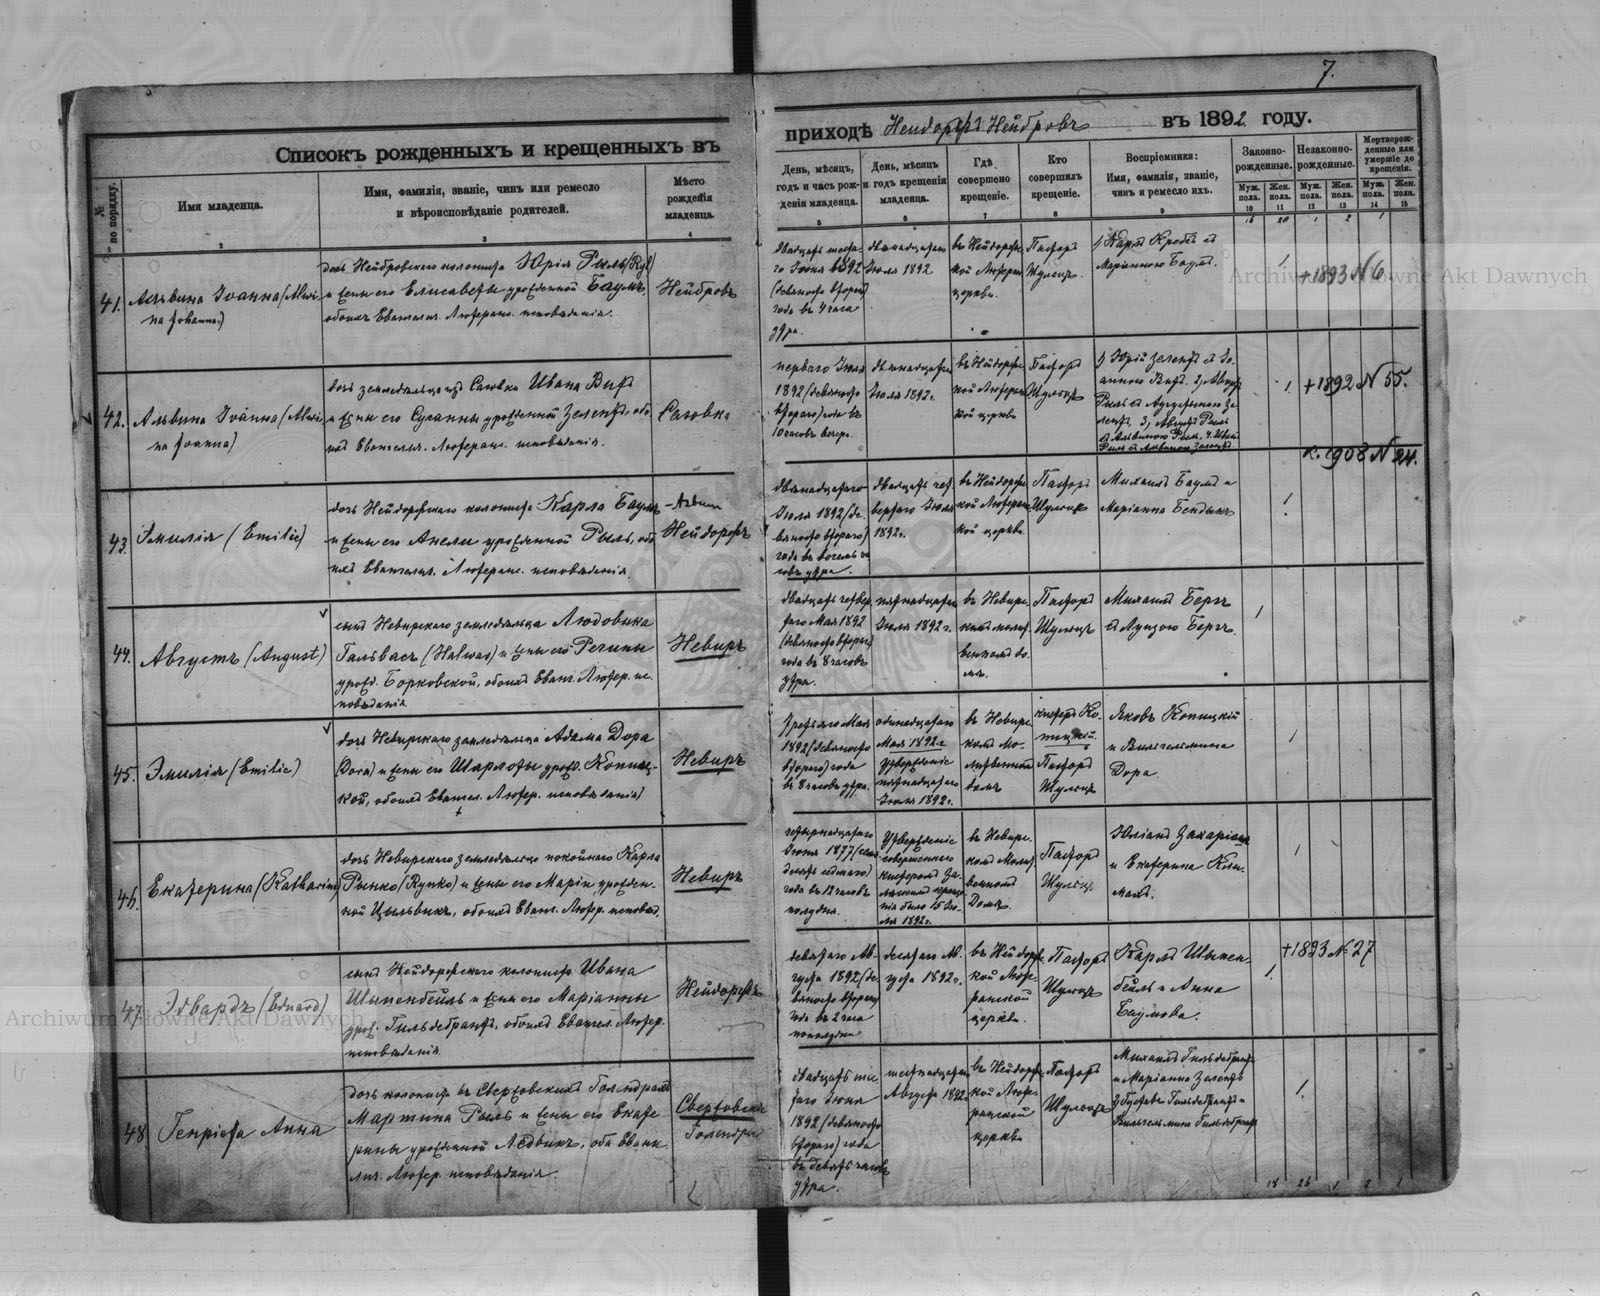 7.
Списокъ рожденныхъ и крещенныхъ въ
приходѣ Нейдорфъ Нейбровъ въ 1892 году.
№ по порядку.
Имя младенца.
Имя, фамилія, званіе, чинъ или ремесло
и вѣроисповѣданіе родителей.
Мѣсто
рожденія
младенца.
День, мѣсяцъ,
годъ и часъ рож-
денія младенца.
День, мѣсяцъ
и годъ крещенія
младенца.
Гдѣ
совершено
крещеніе.
Кто
совершилъ
крещеніе.
Воспріемники:
Имя, фамилія, званіе,
чинъ и ремесло ихъ.
Законно-
рожденные.
Незаконно-
рожденные.
Мертворож-
денные или
умершіе до
крещенія.
Муж. пола. Жен. пола. Муж. пола. Жен. пола. Муж. пола. Жен. пола.
2 3 4 5 6 7 8 9 10 11 12 13 14 15
41. Альвина Іоанна (Alwi-
na Johanna)
дочь Нейбровскаго колониста Юрія Рыль (Ryl)
и жены его Елисаветы урожденной Баумъ,
обоихъ Евангелич. Лютеранс. исповѣданія.
Нейбровъ
Іюня 1892
(девяносто второго)
года въ 4 часа
утра.
двѣнадцатаго
Іюля 1892
въ Нейдорфс-
кой Лютеран.
церкви.
Пасторъ
Шульцъ
Маріанною Баумъ.
1
+1893 № 6
42. Альвина Іоанна (Alwi-
na Joanna)
дочь земледѣльца изъ Саювка Ивана Витъ
и жены его Сусанны урожденной Зелентъ, обо-
ихъ Евангелич. Лютеранс. исповѣданія.
Саювка
перваго Іюля
1892 (девяносто
второго) года въ
10 часовъ вечера.
двѣнадцатаго
Іюля 1892 г.
въ Нейдорфс-
кой Лютеран-
кой церкви
Пасторъ
Шульцъ
1) Юрій Зелентъ съ Іо-
анною Витъ. 2) Августъ
Рыль съ
лентъ. 3) Августъ Рыль
1. +1892 № 55.
43. Эмилія (Emilie)
дочь Нейдорфскаго колониста Карла Баумъ
и жены его Анели урожденной Рыль, обо-
ихъ Евангелич. Лютеранс. исповѣданія.
Нейдорфъ
двѣнадцатаго
Іюля 1892 (де-
вяносто второго)
года въ восемь ча-
совъ утра.
двадцать чет-
вертаго Іюля
1892 г.
въ Нейдорфс-
кой Лютеран-
кой церкви
Пасторъ
Шульцъ
Михаилъ Баумъ и
Маріанна Бендыкъ
1
1908 № 24.
44. Августъ (August)
сынъ Невирскаго земледѣльца Людовика
Гальвасъ (Halwas) и жены его Регины
урожд. Борковской, обоихъ Еванг. Лютер. ис-
повѣданія
Невиръ
двадцать четвер-
таго Мая 1892
(девяносто второго)
года въ 8 часовъ
утра.
пятнадцатаго
Іюля 1892 г.
въ Невирс-
комъ молит-
венномъ до-
мѣ.
Пасторъ
Шульцъ
Михаилъ Бергъ
съ Луизою Бергъ.
1
45. Эмилія (Emilie)
дочь Невирскаго земледѣльца Адама Дора
(Dora) и жены его Шарлоты урожд. Копиц-
кой, обоихъ Евангел. Лютер. исповѣданія)
Невиръ
третьяго Мая
1892 (девяносто
второго) года
въ 8 часовъ утра.
одинадцатаго
Мая 1892 г.
Утвержденіе
пятнадцатаго
Іюля 1892 г.
въ Невирс-
комъ Мо-
литвенномъ
домѣ
кистеръ Ко-
пицкій.
Пасторъ
Шульцъ
Яковъ Копицкій
и Вильгельмина
Дора
1
46. Екатерина (Katharina)
дочь Невирскаго земледѣльца покойнаго Карла
Рынко (Rynko) и жены его Маріи урожден-
ной Цыльвикъ, обоихъ Еванг. Лютер. исповѣд.
Невиръ
четырнадцатаго
Іюня 1877 (семь-
десять седьмаго)
года въ 12 часовъ
полудня.
Утвержденіе
совершеннаго
кистеромъ
нія было 15 Ію-
ля 1892 г.
въ Невирс-
комъ Молит-
венномъ
Домѣ
Пасторъ
Шульцъ
и Екатерина
1
47. Эдвардъ (Eduard)
сынъ Нейдорфскаго колониста Ивана
Шыпенбейль и жены его Маріанны
урож. Гильдебрантъ, обоихъ Евангел. Лютер.
исповѣданія
Нейдорфъ
девятаго Ав-
густа 1892 (де-
вяносто второго)
года въ 2 часа
пополудни
десятаго Ав-
густа 1892 г.
въ Нейдорфс-
кой Люте-
ранской
церкви.
Пасторъ
Шульцъ
Карлъ Шыпен-
бейль и Анна
Баумова.
1.
+1893 № 27
48. Генріета Анна
дочь колониста въ Свержовскихъ Голендрахъ
Мартина Рыль и жены его Екате-
рины урожденной Лѣдвикъ, оба Еванге-
лич. Лютер. исповѣданія.
Свержовскія
Голендры
Іюня
1892 (девяносто
второго) года
въ девять часовъ
утра.
шестнадцатаго
Августа 1892
въ Нейдорфс-
кой Люте-
ранской
церкви
Пасторъ
Шульцъ
Михаилъ Гильдебрантъ
и Маріанна Зелентъ
2) Густавъ Гильдебрантъ и
Вильгельмина Гильдебрантъ
1.
18 26 1 2 1
Archiwum Główne Akt Dawnych
Archiwum Główne Akt Dawnych